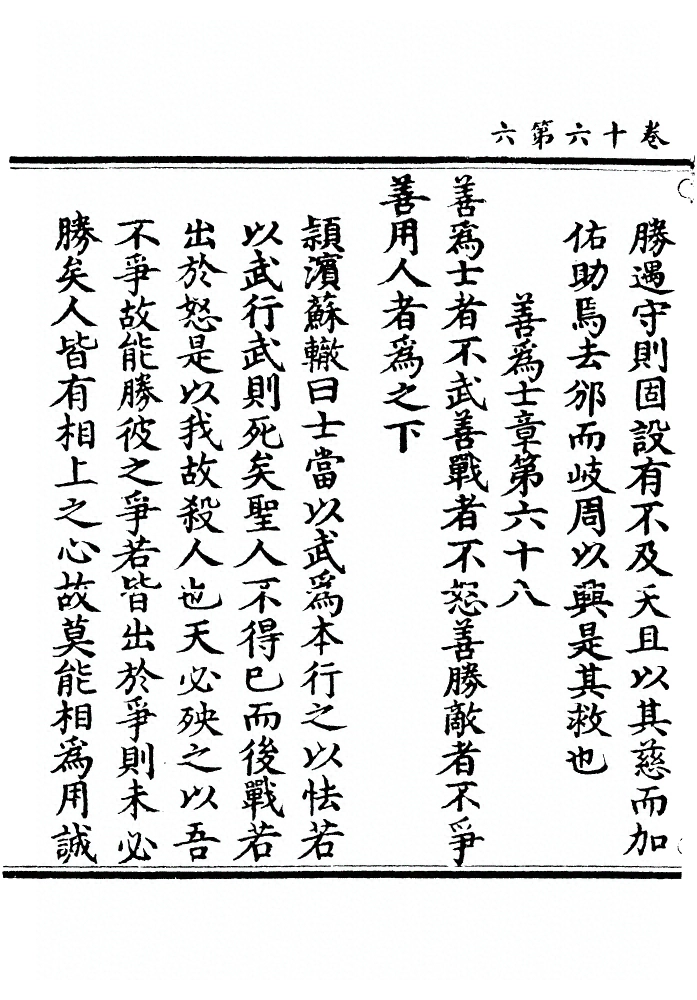 卷十六第六
勝遇守則固設有不及天且以其慈而加
佑助焉去邠而岐周以興是其救也
善為士章第六十八
善為士者不武善戰者不怒善勝敵者不爭
善用人者為之下
潁濱蘇轍曰士當以武為本行之以怯若
以武行武則死矣聖人不得已而後戰若
出於怒是以我故殺人也天必殃之以吾
不爭故能勝彼之爭若皆出於爭則未必
勝矣人皆有相上之心故莫能相為用誠